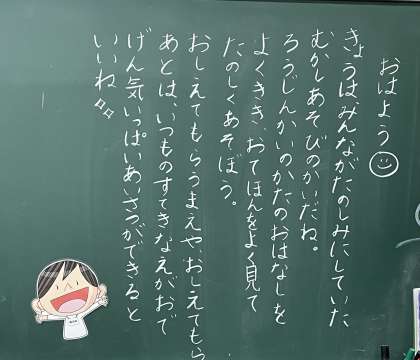 おはよう
きょうは、みんながたのしみにしていた
むかしあそびのかいだね。
ろうじんかいのかたのおはなしを
よくきき、おてほんをよく見て
たのしくあそぼう。
おしえてもらうまえや、おしえてもら
あとは、いつものすてきなえがおで
げん気いっぱいあいさつができると
いいね